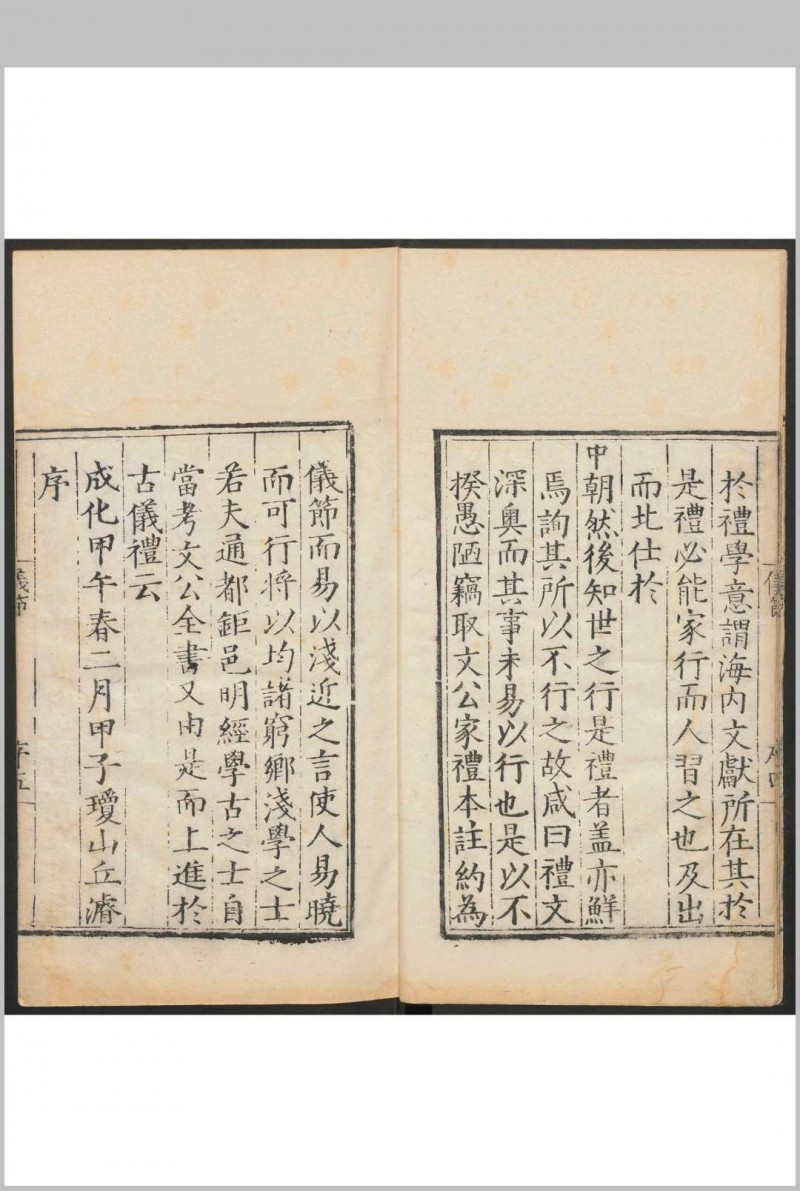 於禮學意謂海内文獻所在其於
是禮必能家行而人習之也及出
而北仕於
中朝然後知世之行是禮者盖亦鮮
焉詢其所以不行之故咸曰禮文
深奥而其事未易以行也是以不
揆愚陋竊取文公家禮本註約為
儀節而易以淺近之言使人易曉
而可行将以均諸窮鄉淺學之士
若夫通都鉅邑明經學古之士自
當考文公全書又由是而上進於
古儀禮云
成化甲午春二月甲子瓊山丘濬
序
儀節
序五